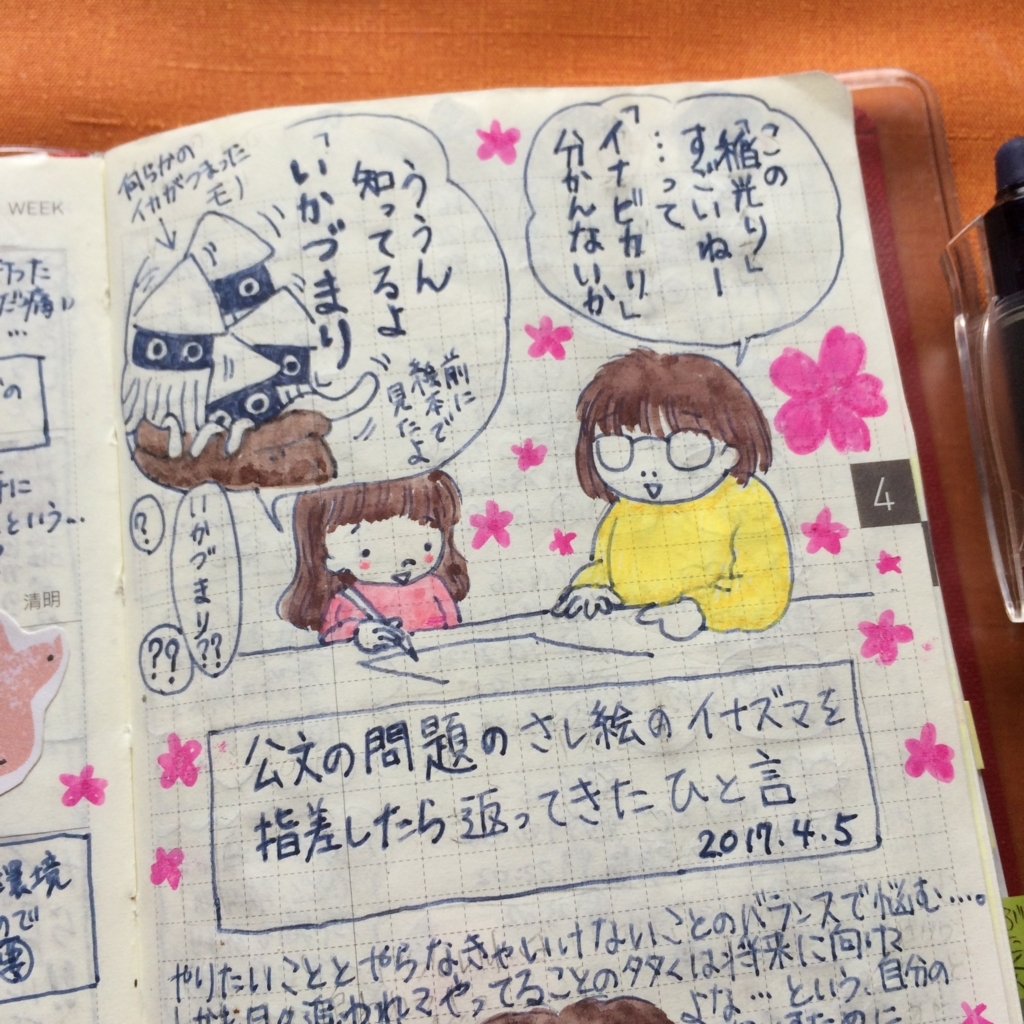 この
「稲光り」
すごいねー
…って
「イナビカリ」
分かんないか
ううん
知ってるよ
「いかづまり」
前に
絵本で
見たよ
何らかの
イカがつまった
モノ
いかづまり??
?
??
公文の問題のさし絵のイナズマを
指差したら返ってきたひと言
2017.4.5
やりたいこととやらなきゃいけないことのバランスで悩む…。
やってることの多くは将来に向けて
よな…という、自分の
4
WEEK
清明
という…
環境